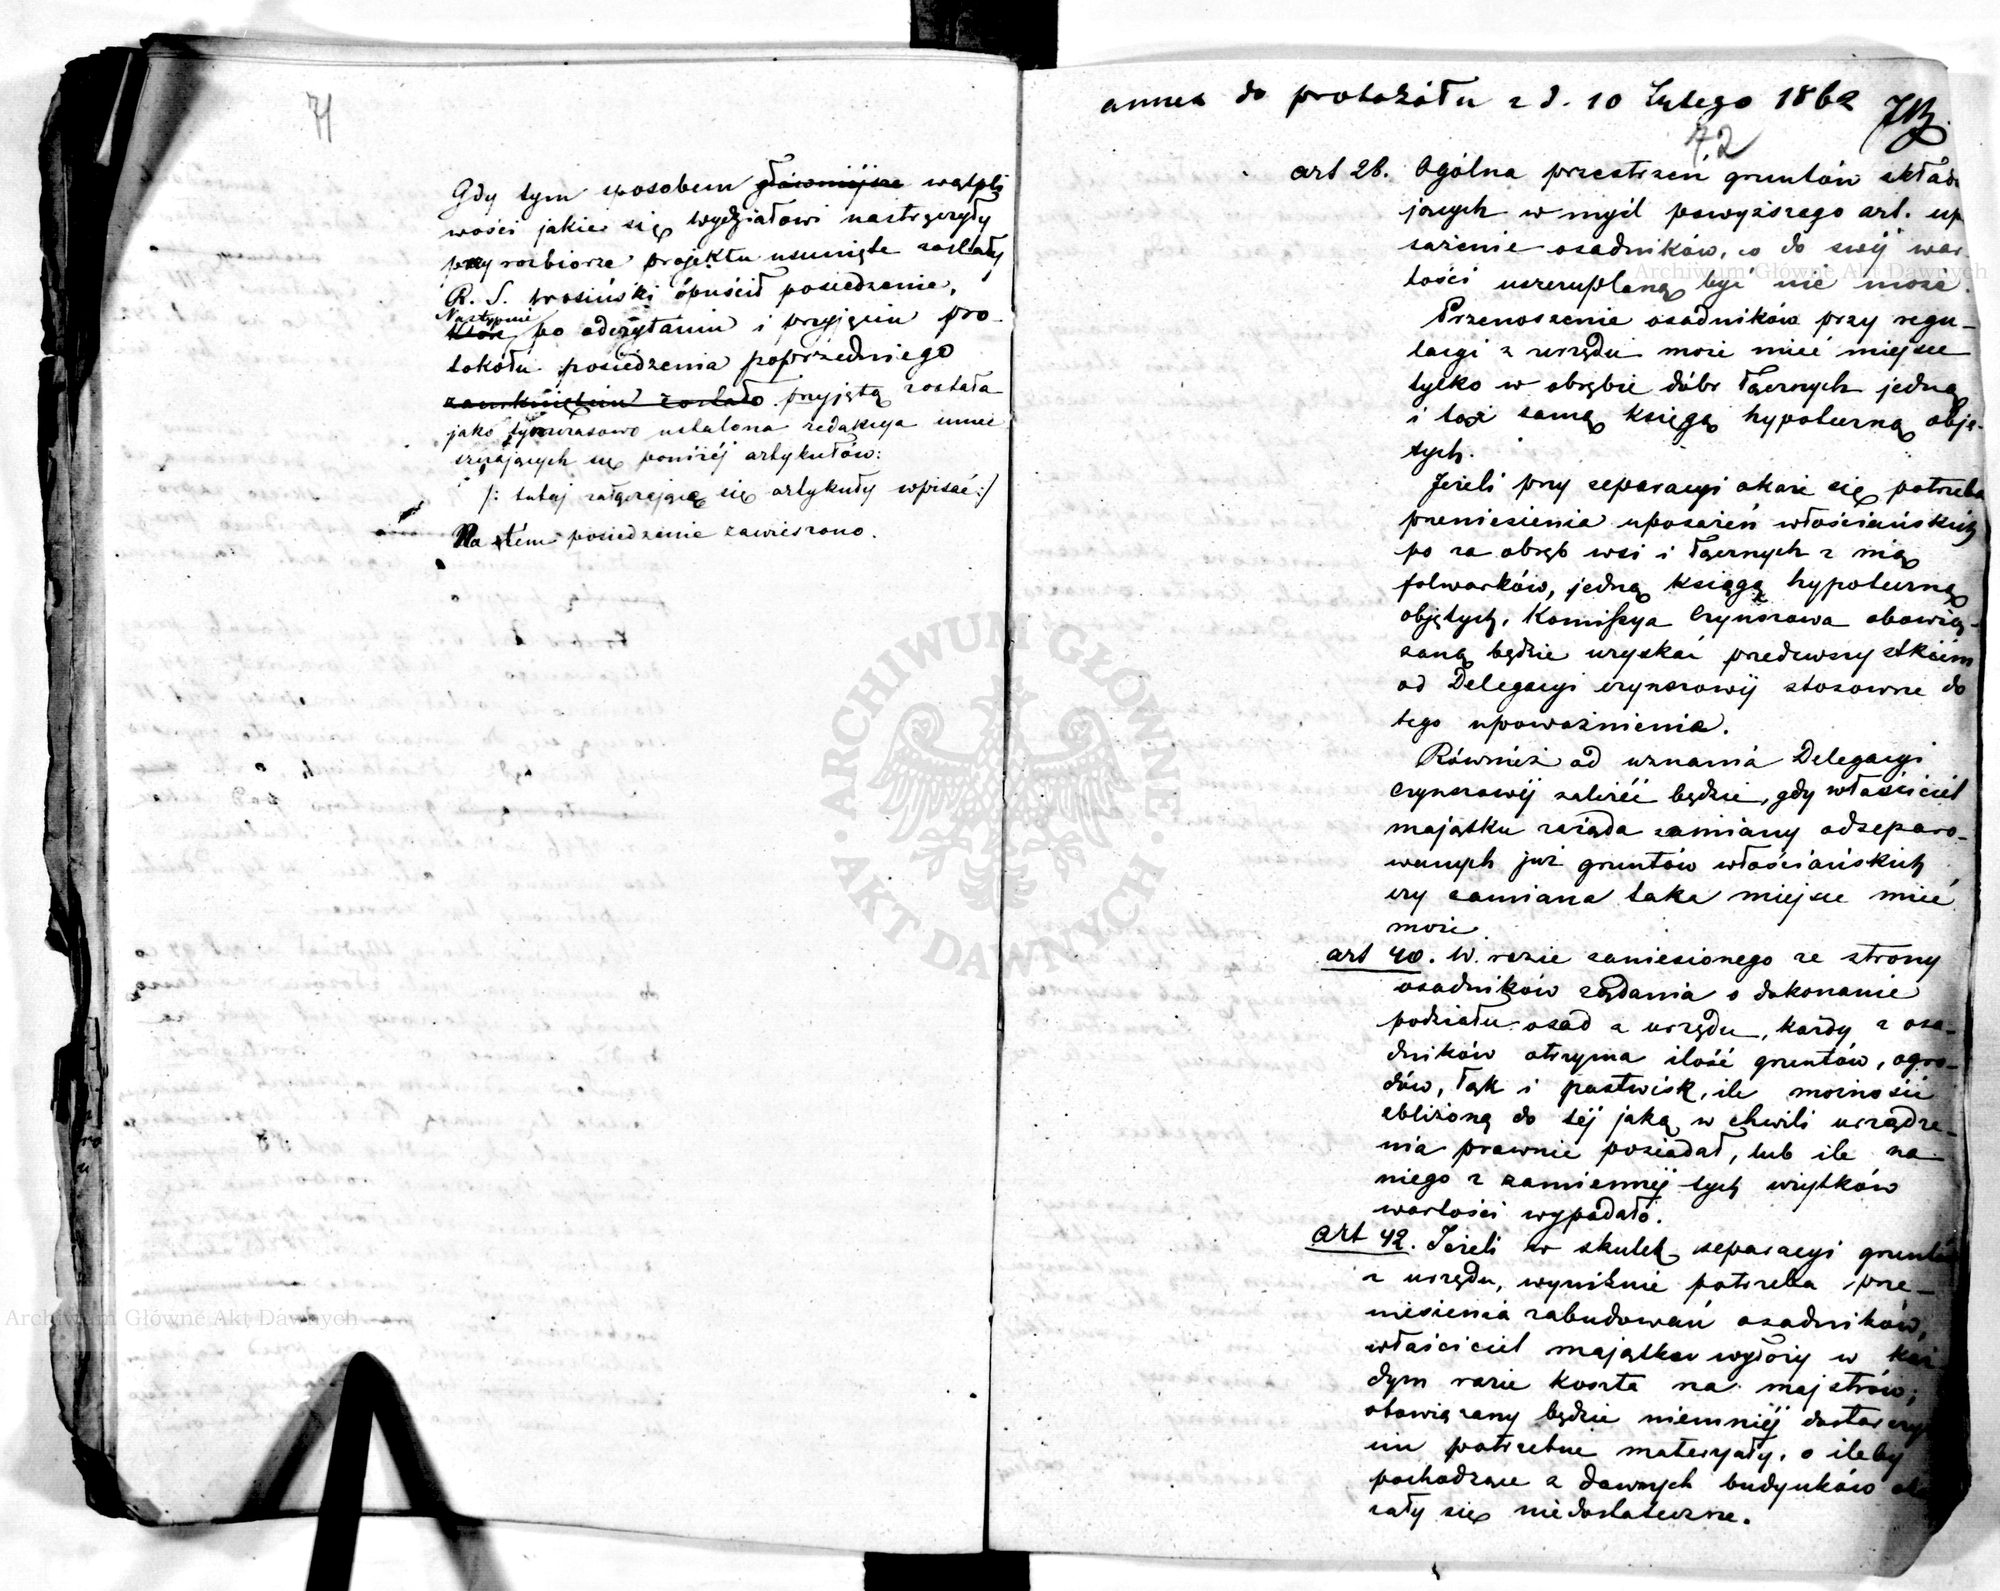 71
Gdy tym sposobem główniejsze wątpli
wości jakie się wydziałowi nastręczyły
przy rozbiorze projektu usunięte zostały
R. S. opuścił posiedzenie,
Następnie
po odczytaniu i przyjęciu pro-
tokółu posiedzenia poprzedniego
zamknięciu zostało przyjętą została
jako tymczasowo ustalona redakcya umie
szczających się poniżéj artykułów:
/: tutaj załączające się artykuły wpisać :/
Na tém posiedzenie zawieszono.
annex do protokółu z d. 10 Lutego 1862
72
art 28. Ogólna przestrzeń gruntów składa
jących w myśl powyższego art. up
sażenie osadników, co do swéj war
tości uszczuploną być nie może.
Przenoszenie osadników przy regu-
lacyi z urzędu może mieć miejsce
tylko w obrębie dóbr łącznych jedną
i taż samą księgą hypoteczną obję-
tych.
Jeżeli przy separacyi okaże się potrzeba
przeniesienia uposażeń włościańskich
po za obręb wsi i łącznych z nią
folwarków, jedną księgą hypoteczną
objętych, Kommissya Czynszowa obowią-
zaną będzie uzyskać przedewszystkiém
od Delegacyi czynszowéj stosowne do
tego upoważnienia.
Również od uznania Delegacyi
Czynszowéj zależéć będzie, gdy właściciel
majątku zażąda zamiany odseparo-
wanych już gruntów włościańskich,
czy zamiana taka miejsce mieć
może.
art 40. W razie zaniesionego ze strony
osadników żądania o dokonanie
podziału osad z urzędu, każdy z osa-
dników otrzyma ilość gruntów, ogro-
dów, łąk i pastwisk, ile możności
zbliżoną do téj jaką w chwili urządze-
nia prawnie posiadał, lub ile na
niego z zamiennéj tych użytków
wartości wypadało.
art 42. Jeżeli w skutek separacyi gruntów
z urzędu, wyniknie potrzeba prze-
niesienia zabudowań osadników,
właściciel majątku wyłoży w każ
dym razie koszta na majstrów;
obowiązany będzie niemniéj dostarczyć
im potrzebne materyały, o ileby
pochodzące z dawnych budynków oka
zały się niedostateczne.
Archiwum Główne Akt Dawnych
ARCHIWUM GŁÓWNE · AKT DAWNYCH ·
Archiwum Główne Akt Dawnych